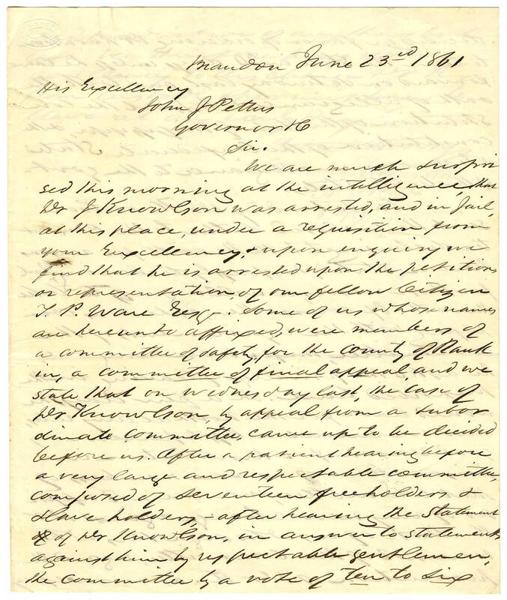 Brandon June 23rd 1861
His Excellency
John J Pettus
Governor &c
Sir.
We are much surpri
sed this morning at the intelligence that
Dr J Knowlson was arrested, and in Jail,
at this place, under a requisition from
your Excellency, & upon enquiry we
find that he is arrested upon the petition
or representation of our fellow Citizen
T. P. Ware Esqr. Some of us whose names
are hereunto affixed, were members of
a committee of safety, for the County of Rank
in, a committee of final appeal and we
state that on Wednesday last, the case of
Dr Knowlson, by appeal from a subor
dinate committee, came up to be decided
before us. After a patient hearing before
a very large and respectable committee,
composed of seventeen freeholders &
slave holders, after hearing the statement
of Dr Knowlson, in answer to statements
against him by respectable gentlemen,
the committee by a vote of ten to six